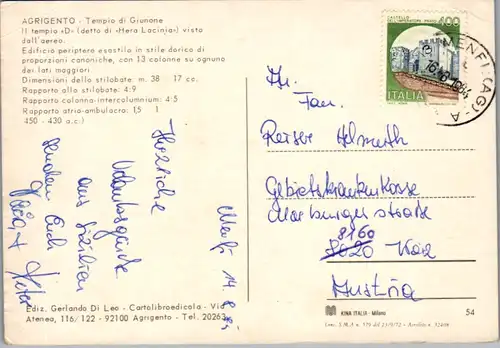 AGRIGENTO - Tempio di Giunone
Il tempio «D» (detto di «Hera Lacinia») visto
dall'aereo.
Edificio periptero esastilo in stile dorico di
proporzioni canoniche, con 13 colonne su ognuno
dei lati maggiori
Dimensioni dello stilobate: m. 38 17 ca.
Rapporto allo stilobate: 4:9
Rapporto colonna-intercolumnium: 4:5
Rapporto atrio-ambulacro: 1,5 1
450 - 430 a.c.)
Herzliche
Urlaubsgrüße
aus Sizilien
senden Euch
Peter
Menfi 14.
400
ITALIA
MENFI (AG) - A
Fam.
Reiser Helmuth
Gebietskrankenkasse
Marburger straße
8160
8020
Austria
Ediz. Gerlando Di Leo - Cartolibroedicola - Via
Atenea, 116/122 - 92100 Agrigento - Tel. 20263
KINA ITALIA - Milano
54